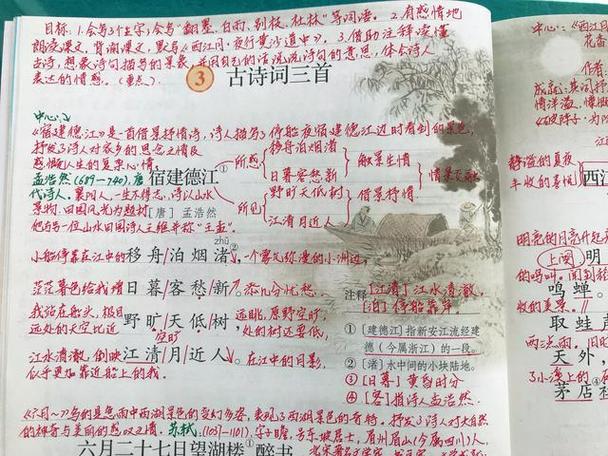 目标：1.会写3个生字；会写“翻墨、白雨、别枝、杜林”等词语。 2.有感情地
朗读课文，背诵课文，默写《西江月·夜行黄沙道中》。3.借助注释读懂
古诗，想象诗句描写的景象，并用自己的话说说诗句的意思，体会诗人
表达的情感。(重点)
3 古诗词三首
中心：
《宿建德江》是一首借景抒情诗，诗人描写了停船夜宿建德江边时看到的景色，
抒发了诗人对家乡的思念之情及
感慨人生的复杂心情。
孟浩然(689—740)，唐
代诗人。襄阳人，一生不得志，诗以山水
景物、田园风光为题材
他与另一位山水田园诗人王维并称“王孟”。
宿建德江①
[唐] 孟浩然
所感
移舟泊烟渚
日暮客愁新
触景生情
所见
野旷天低树
江清月近人
借景抒情
情景交融
小船停靠在江中的
zhǔ
移舟/泊烟渚②，
一个雾气弥漫的小洲边，
茫茫暮色给我增
日暮/客愁/新。
添几分忧愁。
我站在船头，极目
远处的天空比近
野旷/天低/树，
空旷
远眺，原野空旷，
处的树还要低，
江水清澈，倒映
江清/月近/人。
在江中的月影，
似乎更加靠近船上的我。
注释
[江清]江水清澈。
[泊]停船靠岸。
① [建德江]指新安江流经建
德（今属浙江）的一段。
② [渚]水中间的小块陆地。
③ [日暮]黄昏时分
④ [客]指诗人孟浩然。
《六月~》写的是急雨中西湖景色的变幻多姿，表现了西湖景色的奇特，抒发了诗人对大自然
的神奇与美丽的感叹之情。苏轼：(1037—1101)，字子瞻，号东坡居士，眉州眉山(今属四川)人，
六月二十七日望湖楼①醉书
中心：《西江月
作者
静谧的夏夜
丰收的喜悦
西江
明亮的月亮升起
上阕
鸣蝉。
取蛙声
天外，
茅店社